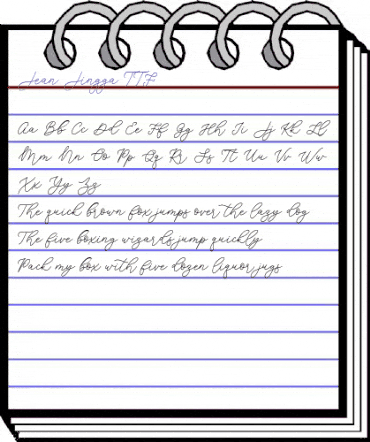 Jean Jingga TTF
Aa Bb Cc Dd Ee Ff Gg Hh Ii Jj Kk Ll
Mm Nn Oo Pp Qq Rr Ss Tt Uu Vv Ww
Xx Yy Zz
The quick brown fox jumps over the lazy dog
The five boxing wizards jump quickly
Pack my box with five dozen liquor jugs